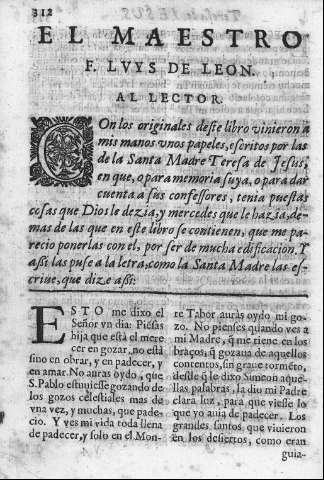 312
EL MAESTRO
F. LVYS DE LEON.
AL LECTOR.
Con los originales deste libro vinieron à
mis manos vnos papeles, escritos por las
de la Santa Madre Teresa de Iesus,
en que, o para memoria suya, o para dar
cuenta a sus confessores, tenia puestas
cosas que Dios le dezia, y mercedes que le hazia, de-
mas de las que en este libro se contienen, que me pa-
recio ponerlas con el, por ser de mucha edificacion. Y
assi las puse a la letra, como la Santa Madre las es-
criue, que dize assi:
ESTO me dixo el
Señor vn dia: Piesas
hija que està el mere
cer en gozar, no està
sino en obrar, y en padecer, y
en amar. No auras oydo, que
S. Pablo estuuiesse gozando de
los gozos celestiales mas de
vna vez, y muchas, que pade-
cio. Y ves mi vida toda llena
de padecer, y solo en el Mon-
te Tabor auràs oydo mi go-
zo. No pienses quando ves a
mi Madre, q̃ me tiene en los
braços, q̃ gozaua de aquellos
contentos, sin graue tormẽto,
desde q̃ le dixo Simeon aque-
llas palabras, la dio mi Padre
clara luz, para que viesse lo
que yo auia de padecer. Los
grandes santos, que viuieron
en los desiertos, como eran
guia-